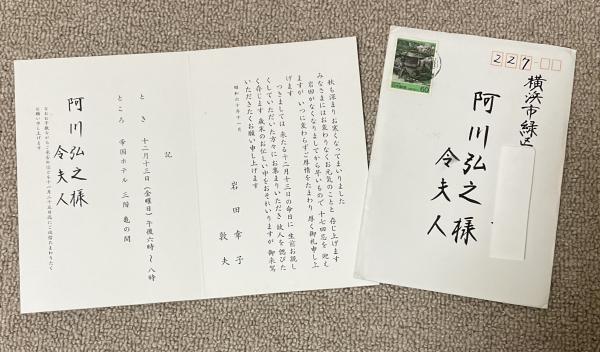 秋も深まりお寒くなってまいりました
みなさまにはお変わりなくお元気のことと存じ上げます
岩田がなくなりましてから早いもので 十七回忌を迎え
ますが いつに変わらずご厚情をたまわり 厚く御礼申し上
げます
つきましては 来たる十二月十三日の命日に 生前お親し
くしていただいた方々にお集まりいただき 故人を偲びた
く存じます 歳末のお忙しい中をおそれいりますが 御来駕
いただきたくお願い申し上げます
昭和六十年十一月
岩田幸子
敦夫
記
とき 十二月十三日（金曜日）午後六時〜八時
ところ 帝国ホテル 三階 亀の間
阿川弘之様
令夫人
なおお手数ながらご来否のほどを十一月二十五日迄にご返信たまわりたく
お願い申し上げます
227
60
横浜市緑区
阿川弘之様
令夫人